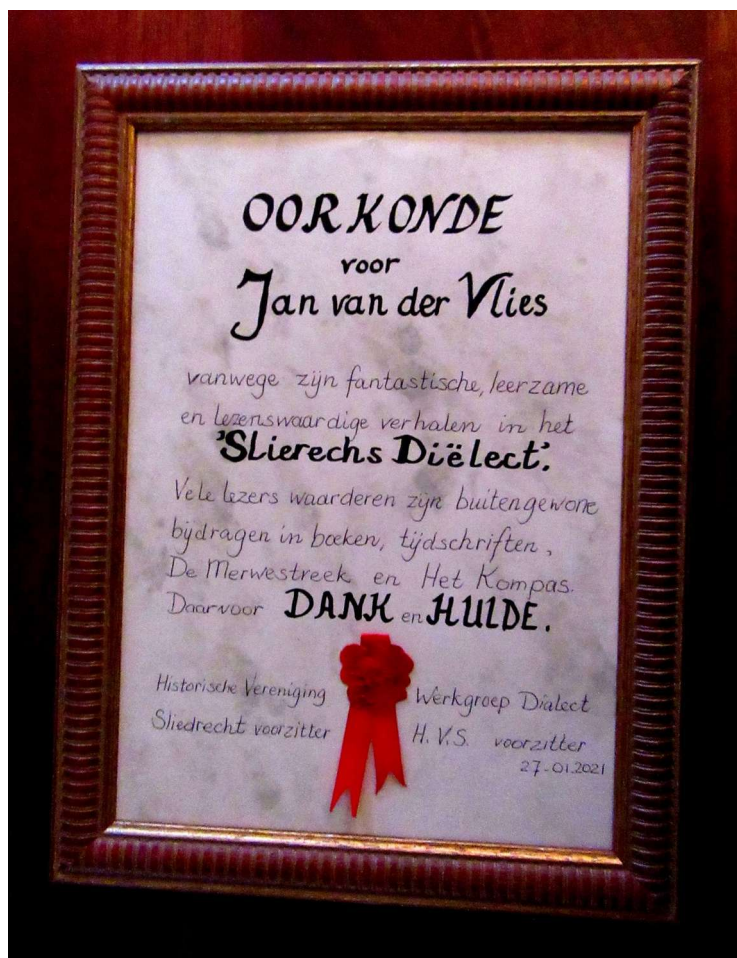 OORKONDE
voor
Jan van der Vlies
vanwege zijn fantastische, leerzame
en lezenswaardige verhalen in het
'Slierechs Diëlect'.
Vele lezers waarderen zijn buitengewone
bijdragen in boeken, tijdschriften,
De Merwestreek en Het Kompas.
Daarvoor DANK en HULDE.
Historische Vereniging
Sliedrecht voorzitter
Werkgroep Dialect
H.V.S. voorzitter
27-01.2021